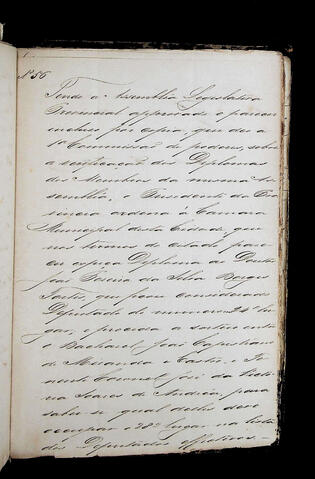 Nº 56
Tendo a Assemblea Legislativa
Provincial approvado o parecer
incluso por copia, que deu a
1ª Commissão de poderes, sobre
a verificação dos Diplomas
dos Membros da mesma As-
semblea, o Presidente da Pro-
vincia ordena á Camara
Municipal desta Cidade, que
nos termos do citado pare-
cer expeça Diploma ao Doutor
José Pereira da Silva
que ficou considerado
Deputado de numero 24º lu-
gar, e proceda a sorteio entre
o Bacharel José Capistrano
de Miranda e Castro, e Te-
nente Coronel José da
Soares de Andréa, para
saber-se qual delles deve
occupar o 28º lugar na lista
dos Deputados effectivos